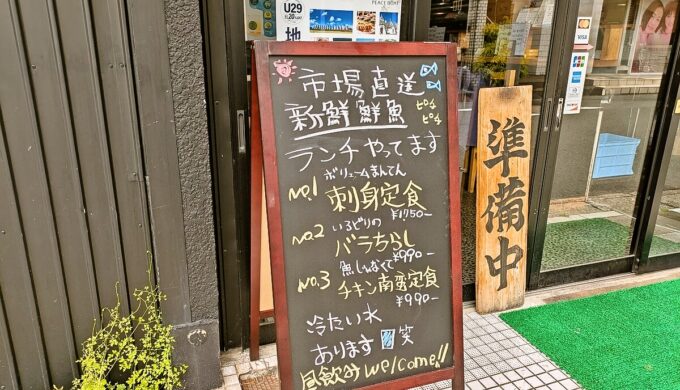 U29
地
PEACE BOAT
市場直送
新鮮鮮魚 ピチピチ
ランチやってます
ボリュームまんてん
No.1 刺身定食
¥1750-
いろどりの
No.2 バラちらし
¥990-
魚じゃなくて
No.3 チキン南蛮定食
¥990-
冷たい水
あります 笑
昼飲みwelcome!!
準備中
VISA